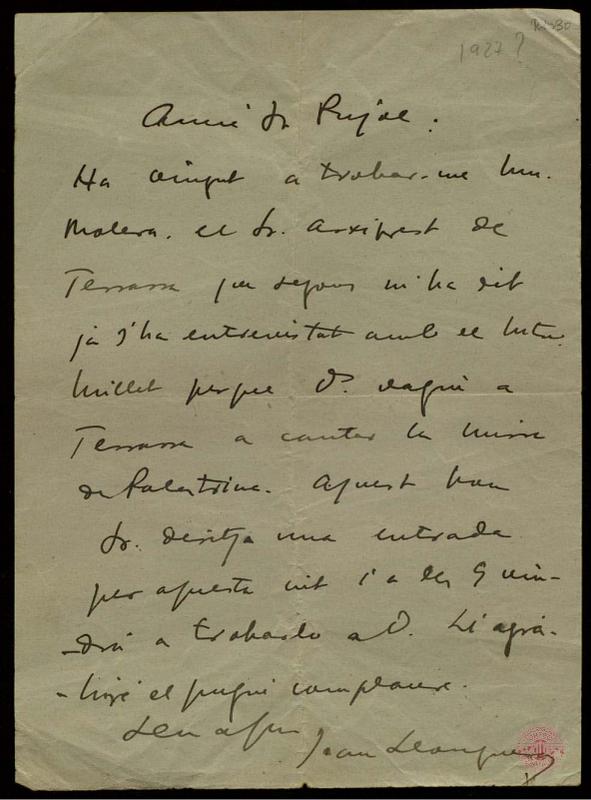 1927?
Amic Sr Pujol:
Ha vingut a trobar-me Mn.
Molera, el Sr. Arxiprest de
Terrassa que segons m'ha dit
ja s'ha entrevistat amb el Mtre
Millet perque V. vagin a
Terrassa a cantar la missa
de Palestrina. Aquest bon
Sr. desitja una entrada
per aquesta nit i a les 9 vin-
-drá a trobarlo a V. Li agra-
-hiré el pugui complaure.
Seu afm
Joan Llongueras